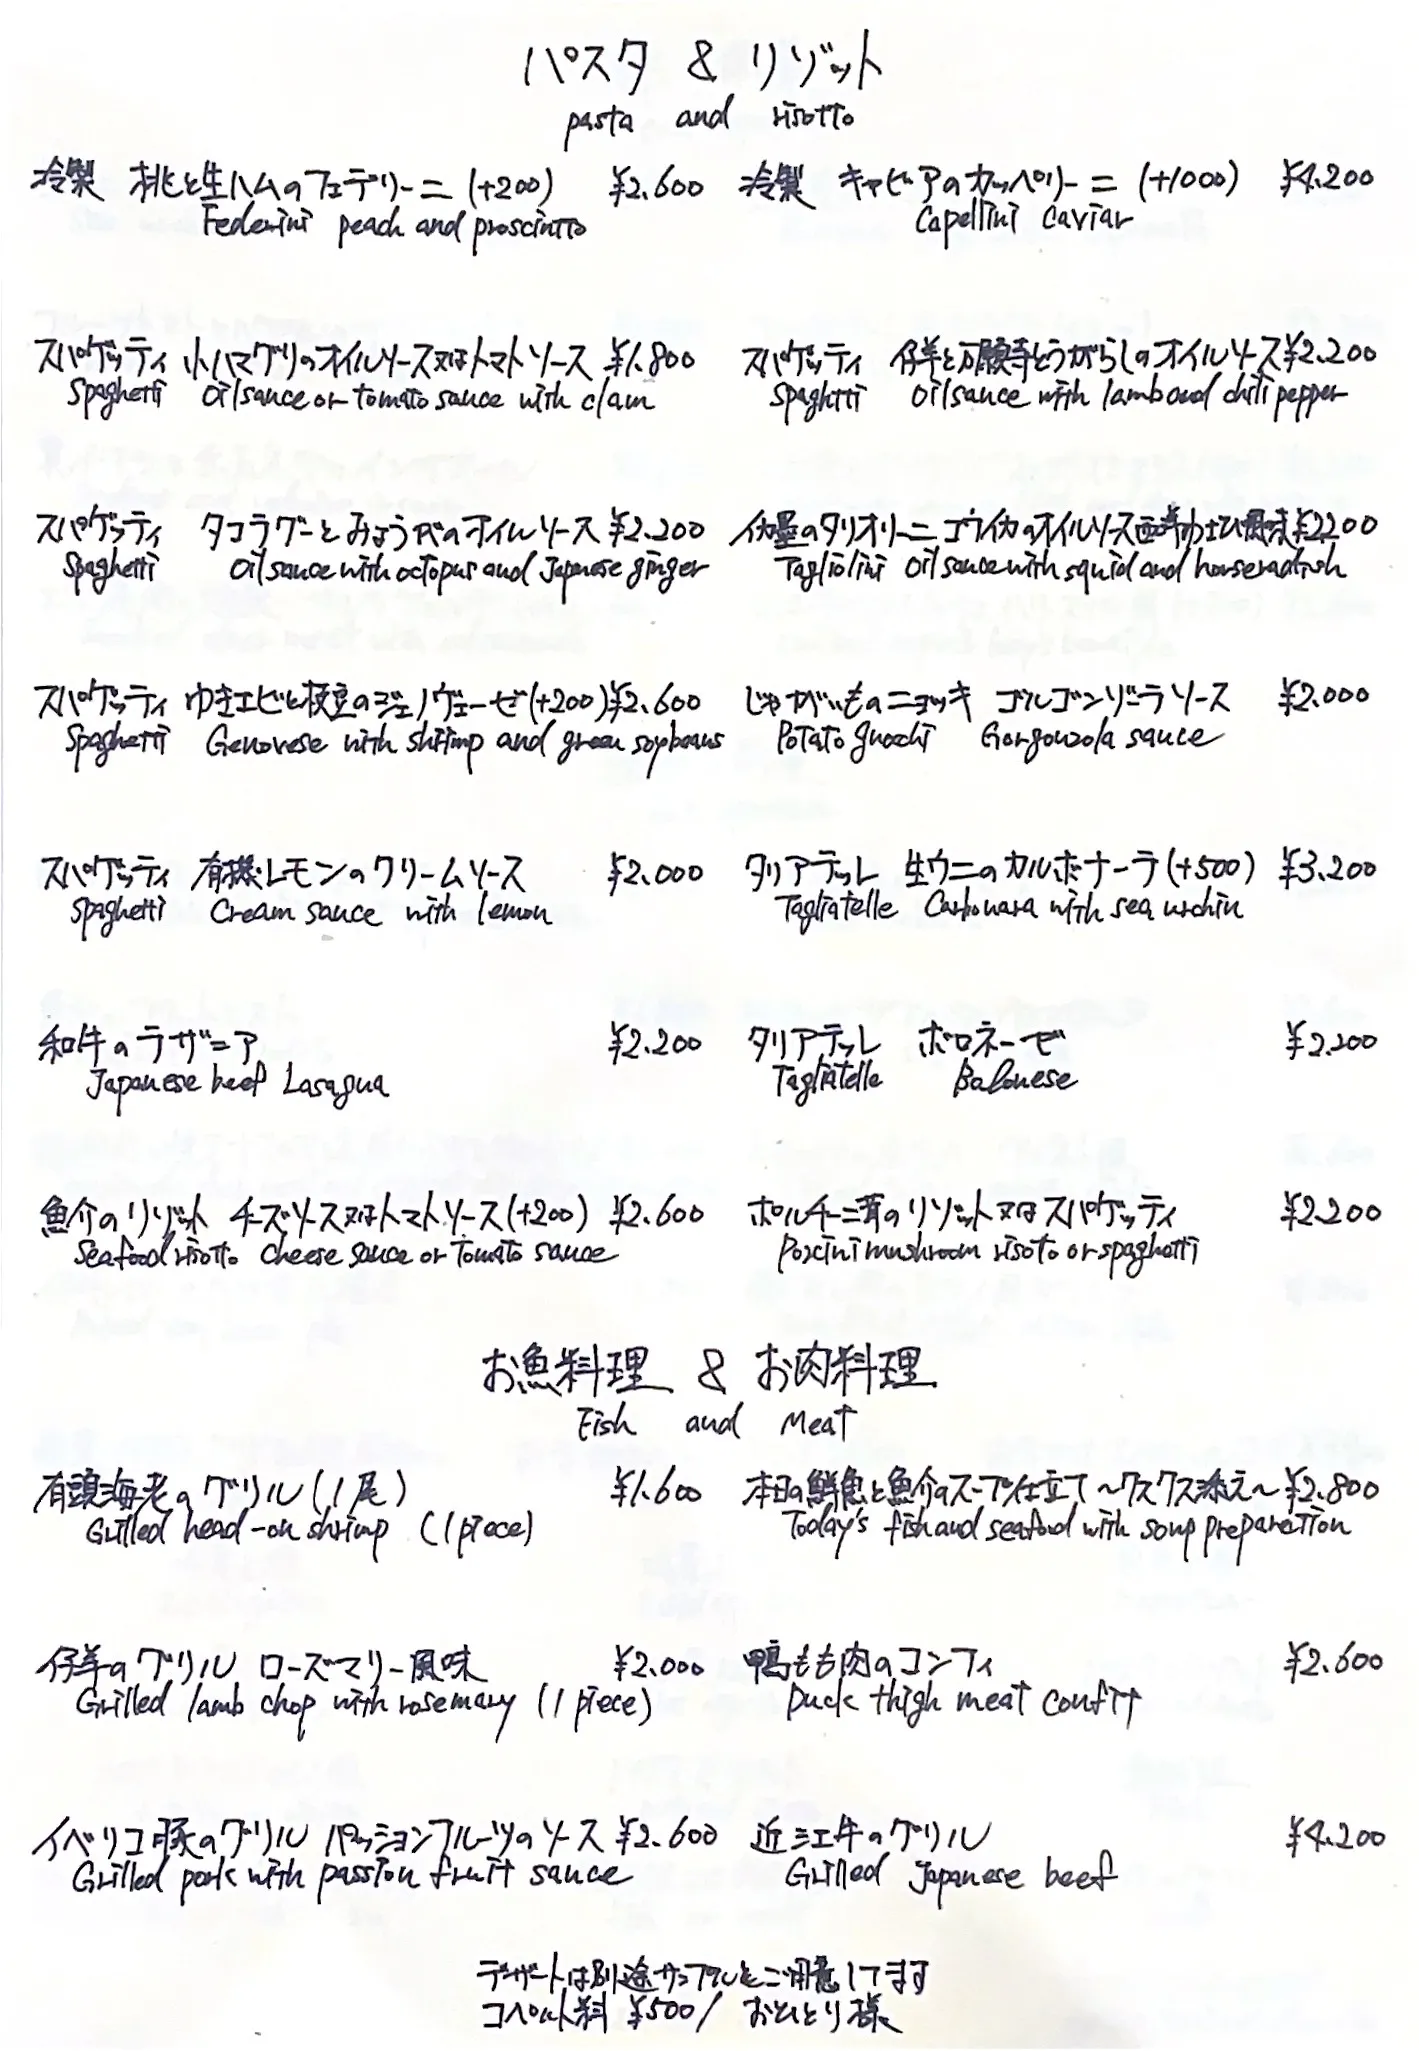 パスタ & リゾット
pasta and risotto
冷製 桃と生ハムのフェデリーニ (+200) ¥2.600
Federini peach and prosciutto
冷製 キャビアのカッペリーニ (+1000) ¥4.200
Capellini Caviar
スパゲッティ 小ハマグリのオイルソース又はトマトソース ¥1.800
Spaghetti Oil sauce or tomato sauce with clam
スパゲッティ 仔羊と万願寺とうがらしのオイルソース ¥2.200
Spaghtti Oil sauce with lamb and chili pepper
スパゲッティ タコラグーとみょうがのオイルソース ¥2.200
Spaghetti Oil sauce with octopus and Japanese ginger
イカ墨のタリオリーニ コウイカのオイルソース 西洋わさび風味 ¥2200
Tagliolini Oil sauce with squid and horseradish
スパゲッティ ゆきエビと枝豆のジェノヴェーゼ (+200) ¥2.600
Spaghetti Genovese with shrimp and green soybeans
じゃがいものニョッキ ゴルゴンゾーラソース ¥2.000
Potato gnocchi Gorgonzola sauce
スパゲッティ 有機レモンのクリームソース ¥2.000
Spaghetti Cream sauce with lemon
タリアテッレ 生ウニのカルボナーラ (+500) ¥3.200
Tagliatelle Carbonara with sea urchin
和牛のラザニア ¥2.200
Japanese beef Lasagna
タリアテッレ ボロネーゼ ¥2.200
Tagliatelle Bolonese
魚介のリゾット チーズソース又はトマトソース (+200) ¥2.600
Seafood risotto Cheese sauce or Tomato sauce
ポルチーニ茸のリゾット又はスパゲッティ ¥2.200
Porcini mushroom risoto or spaghetti
お魚料理 & お肉料理
Fish and Meat
有頭海老のグリル (1尾) ¥1.600
Grilled head-on shrimp (1 piece)
本日の鮮魚と魚介のスープ仕立て ~クスクス添え~ ¥2.800
Today's fish and seafood with soup preparation
仔羊のグリル ローズマリー風味 ¥2.000
Grilled lamb chop with rosemary (1 piece)
鴨もも肉のコンフィ ¥2.600
Duck thigh meat confit
イベリコ豚のグリル パッションフルーツのソース ¥2.600
Grilled pork with passion fruit sauce
近江牛のグリル ¥4.200
Grilled Japanese beef
デザートは別途サンプルをご用意してます
コペルト料 ¥500/ おひとり様